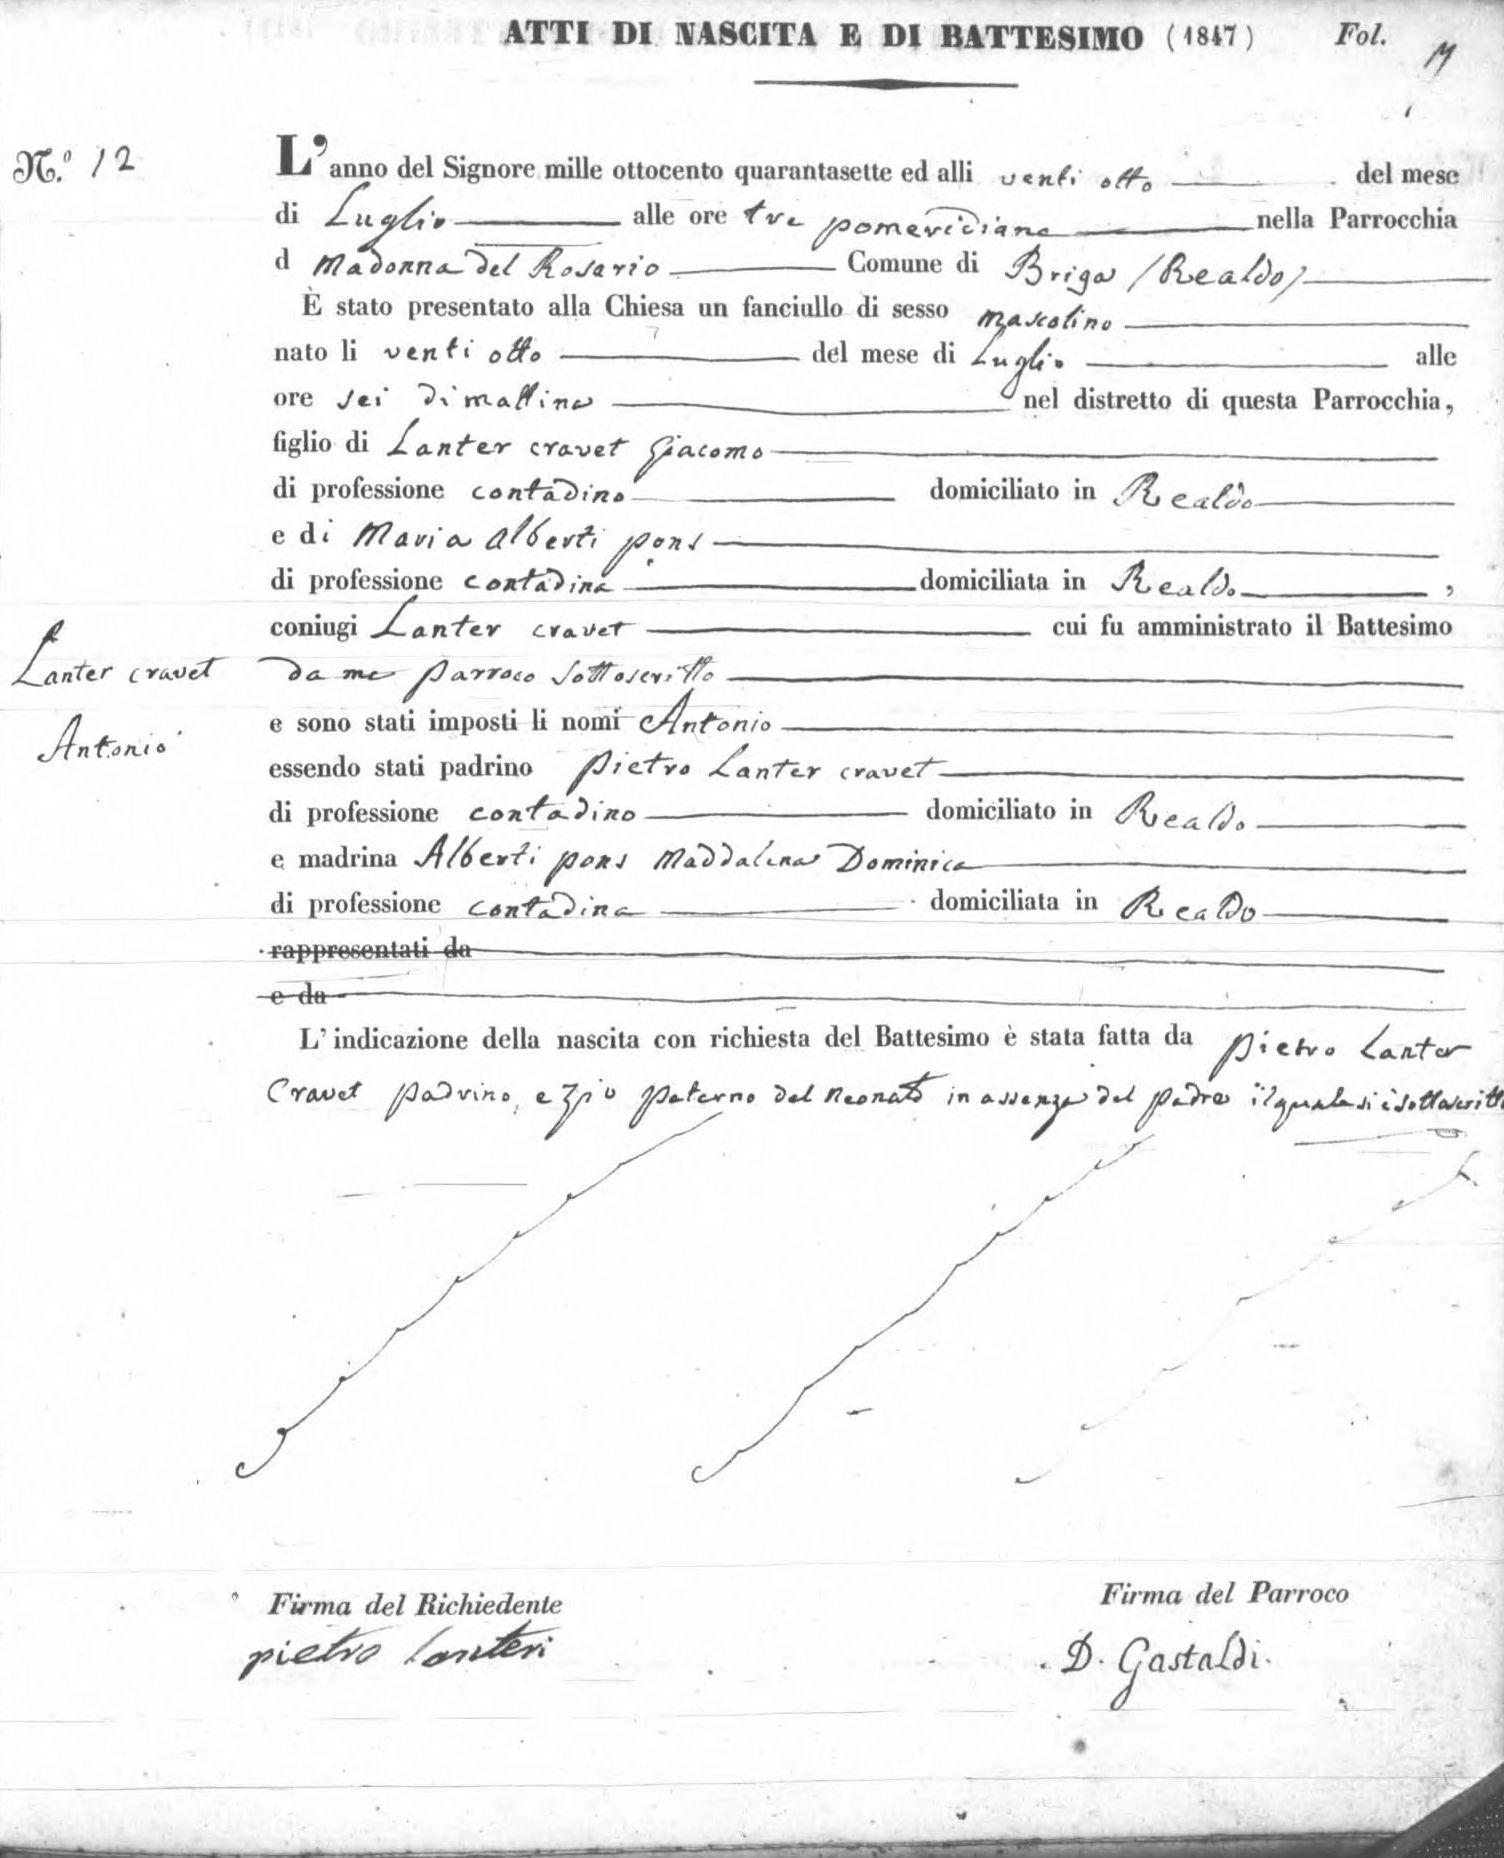 ATTI DI NASCITA E DI BATTESIMO (1847) Fol.
N.º 12
L'anno del Signore mille ottocento quarantasette ed alli venti otto del mese
di Luglio alle ore tre pomeridiane nella Parrocchia
d Madonna del Rosario Comune di Briga (Realdo)
È stato presentato alla Chiesa un fanciullo di sesso mascolino
nato li venti otto del mese di Luglio alle
ore sei di mattina nel distretto di questa Parrocchia,
figlio di Lanter cravet Giacomo
di professione contadino domiciliato in Realdo
e di Maria Alberti pons
di professione contadina domiciliata in Realdo,
coniugi Lanter cravet cui fu amministrato il Battesimo
Lanter cravet
Antonio
da me parroco sottoscritto
e sono stati imposti li nomi Antonio
essendo stati padrino pietro Lanter cravet
di professione contadino domiciliato in Realdo
e madrina Alberti pons Maddalena Dominica
di professione contadina domiciliata in Realdo
rappresentati da
e da
L'indicazione della nascita con richiesta del Battesimo è stata fatta da pietro Lanter
Cravet padrino, e Zio paterno del neonato in assenza del padre il quale si è sottoscritto
Firma del Richiedente
pietro lanteri
Firma del Parroco
D. Gastaldi.